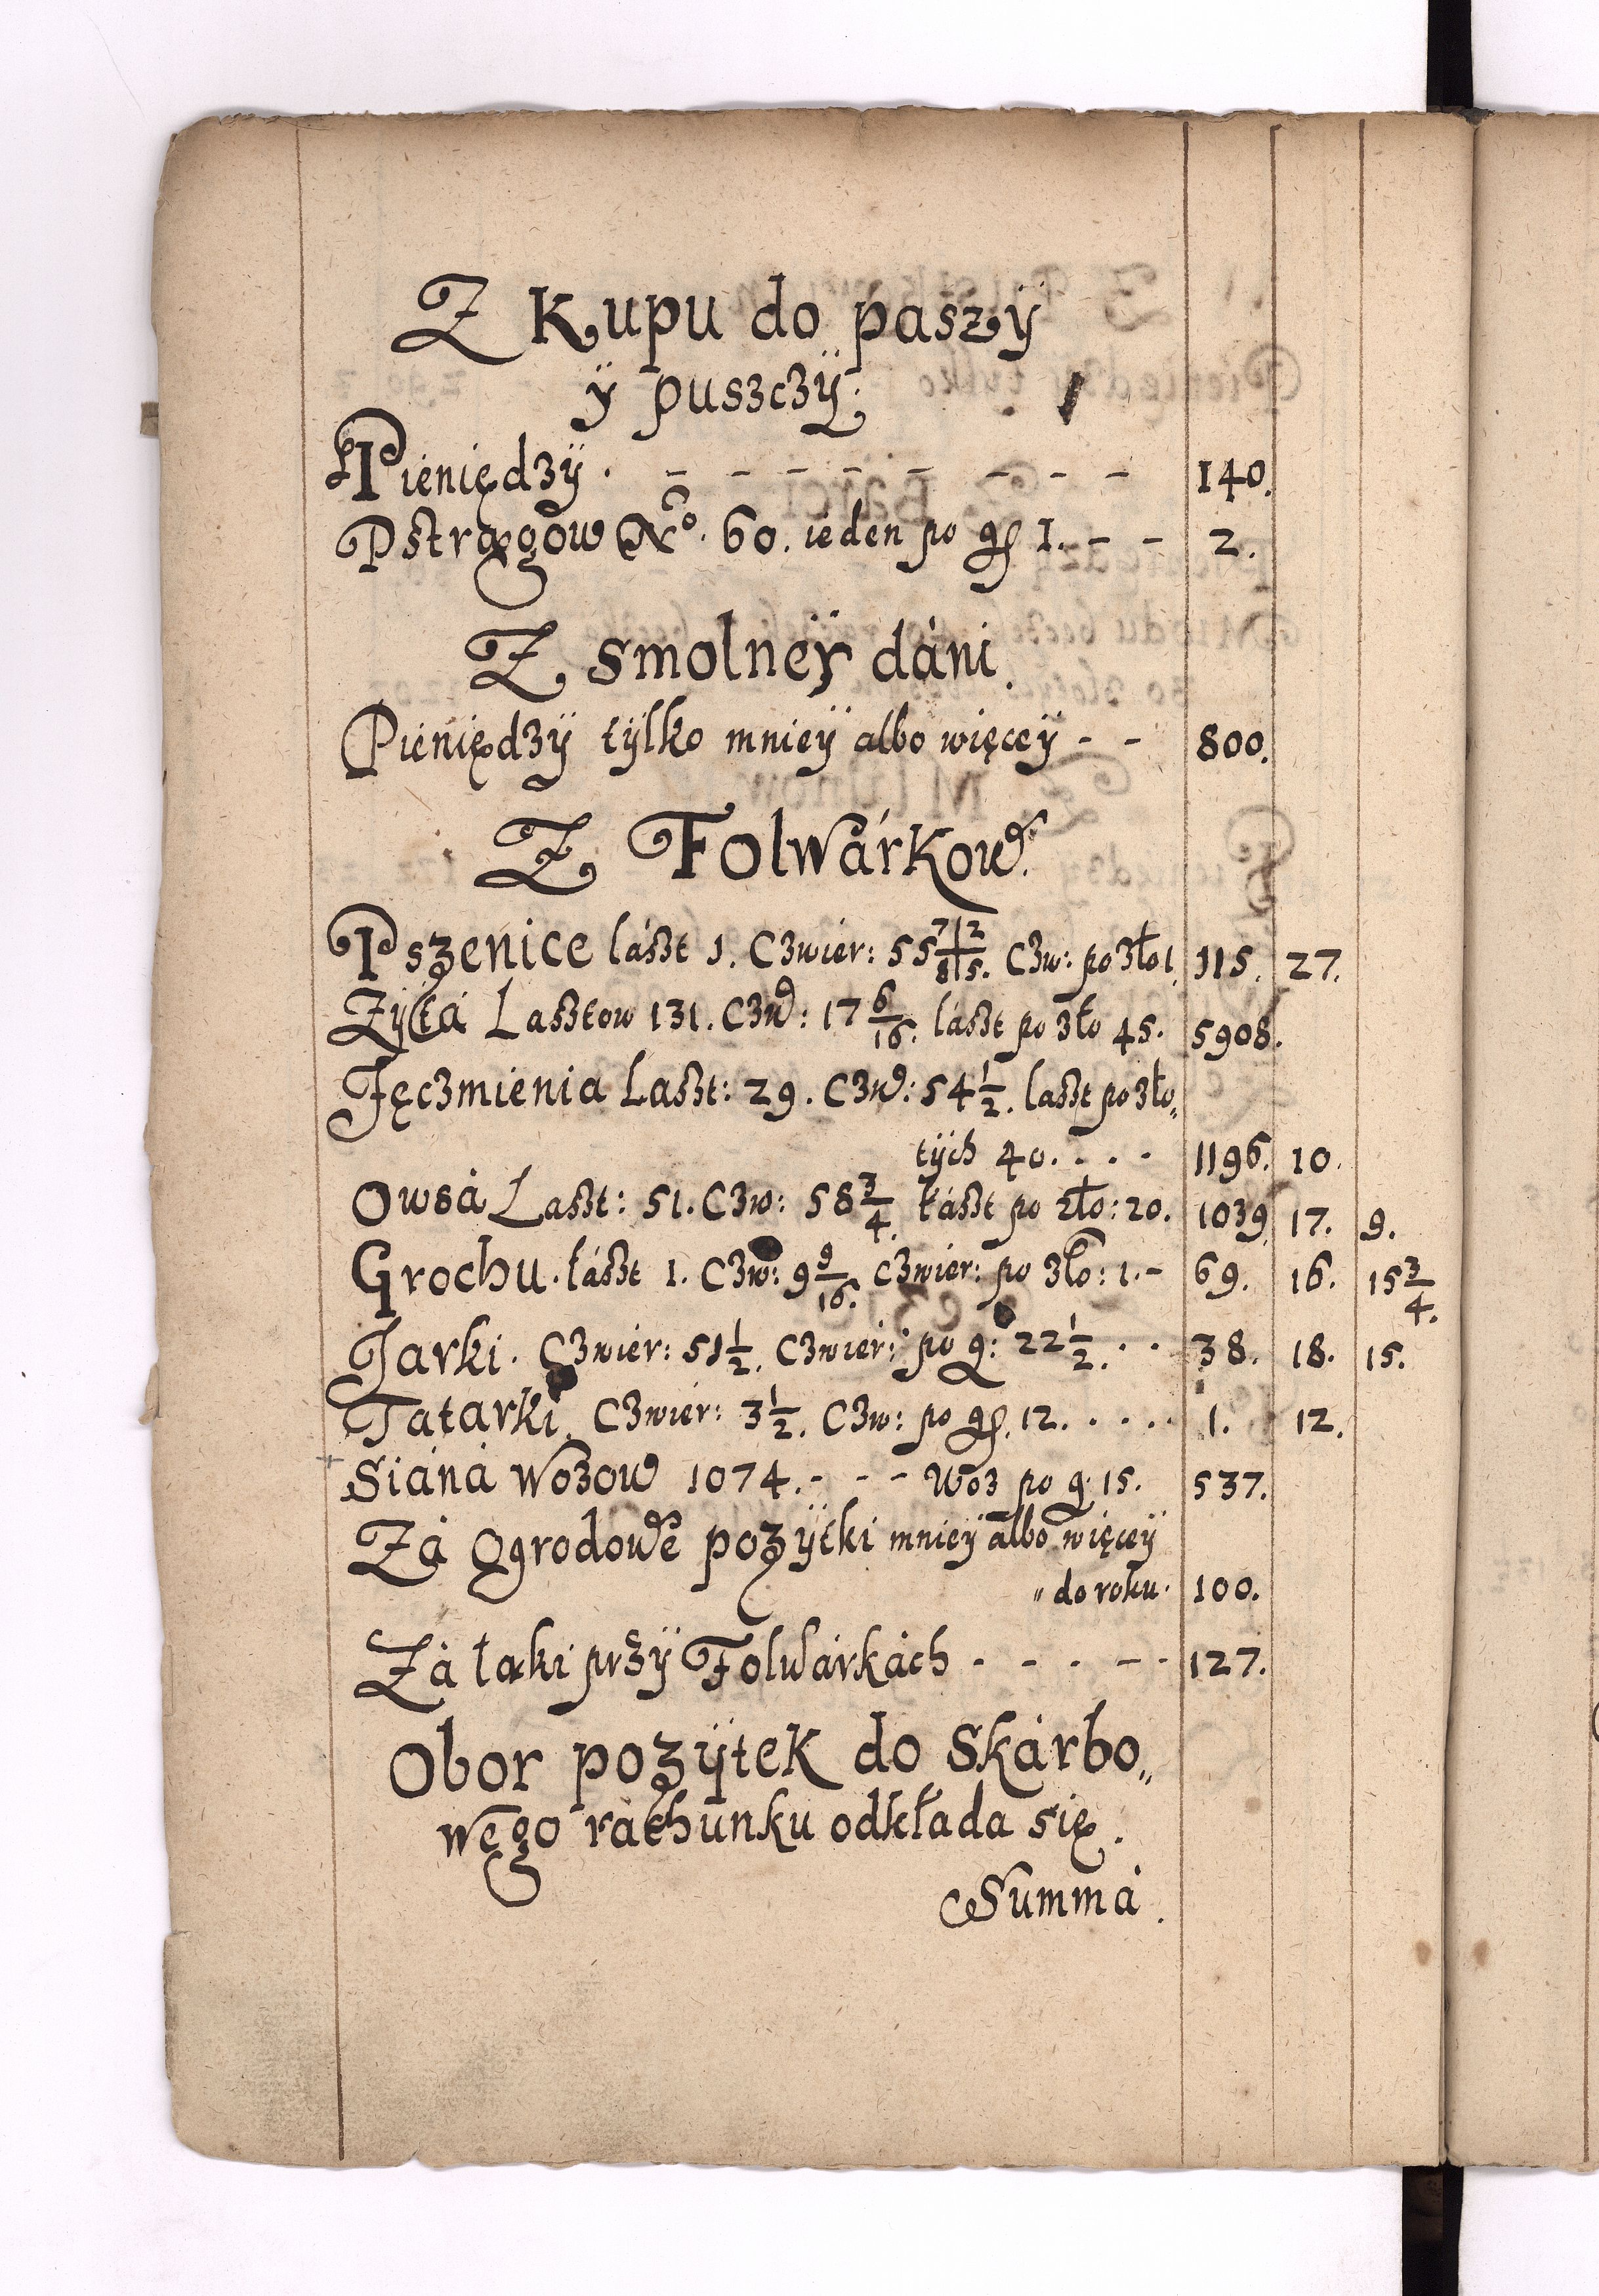 Z Kupu do paszÿ
ÿ puszczÿ.
Pieniędzÿ. - - - - - - - - - 140.
Pstrągow No. 60. ieden po gſ 1. - - 2.
Z smolneÿ dáni.
Pieniędzÿ tÿlko mnieÿ albo więceÿ - - 800.
Z Folwárkow.
Pszenice łászt 1. Czwier: 55 7/8|2/5. Czw: po zło 1. 115. 27.
Zÿtá Lasztow 131. Czw: 17 6/16. łászt po zło 45. 5908.
Jęczmienia Laszt: 29. Czw: 54 1/2. laszt po zło„
tÿch 40. . . . 1196. 10.
Owsá Laszt: 51. Czw: 58 3/4. łászt po zło: 20. 1039 17. 9.
Grochu. łászt 1. Czw: 9 9/16. czwier: po zło: 1. - 69. 16. 15 3/4.
Jarki. Czwier: 51 1/2. Czwier: po g: 22 1/2. . . 38. 18. 15.
Tatarki. Czwier: 3 1/2. Czw: po gſ. 12. . . . . 1. 12.
Siáná Wozow 1074. - - - Woz po g. 15. 537.
Zá Ogrodowe pozÿtki mnieÿ albo więceÿ
„ do roku. 100.
Zá łąki przÿ Folwárkách - - - - - 127.
Obor pozÿtek do Skárbo„
wego rachunku odkłada się.
Summá.